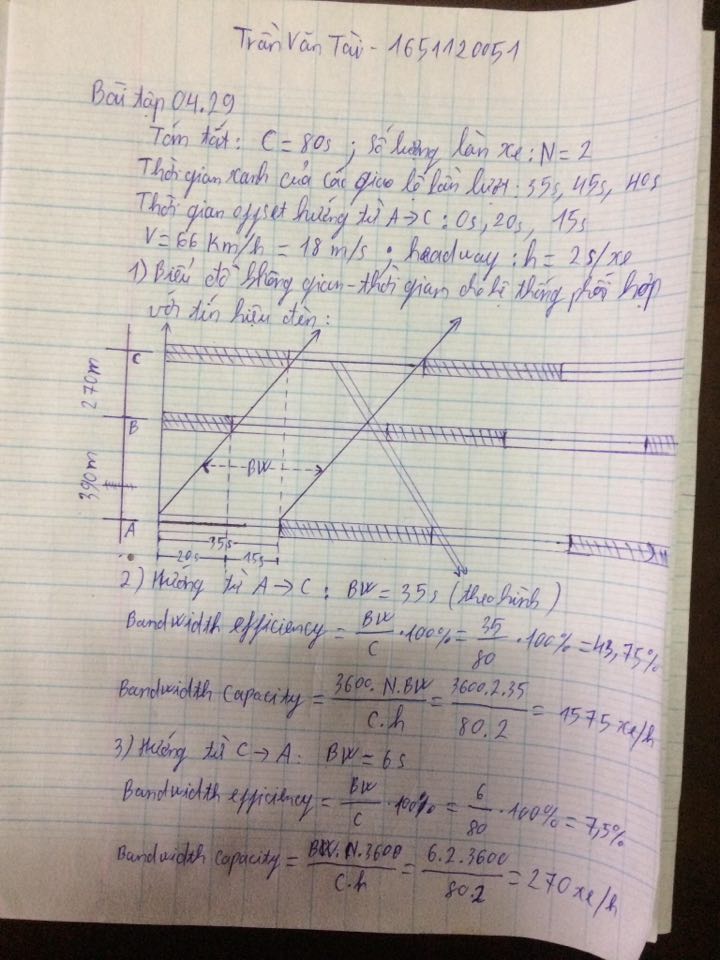 Trần Văn Tài - 1651120051
Bài tập 04.29
Tóm tắt: C = 80s ; số lượng làn xe: N = 2
Thời gian xanh của các giao lộ lần lượt: 35s, 45s, 40s
Thời gian offset hướng từ A→C: 0s, 20s, 15s
V = 66 Km/h = 18 m/s ; headway: h = 2 s/xe
1) Biểu đồ không gian-thời gian cho hệ thống phối hợp
với tín hiệu đèn:
C
270m
B
BW
390m
A
35s
20s 15s
2) Hướng từ A→C: BW = 35s (theo hình)
Bandwidth efficiency = BW/C · 100% = 35/80 · 100% = 43,75%
Bandwidth Capacity = 3600.N.BW/C.h = 3600.2.35/80.2 = 1575 xe/h
3) Hướng từ C→A: BW = 6s
Bandwidth efficiency = BW/C · 100% = 6/80 · 100% = 7,5%
Bandwidth Capacity = BW.N.3600/C.h = 6.2.3600/80.2 = 270 xe/h